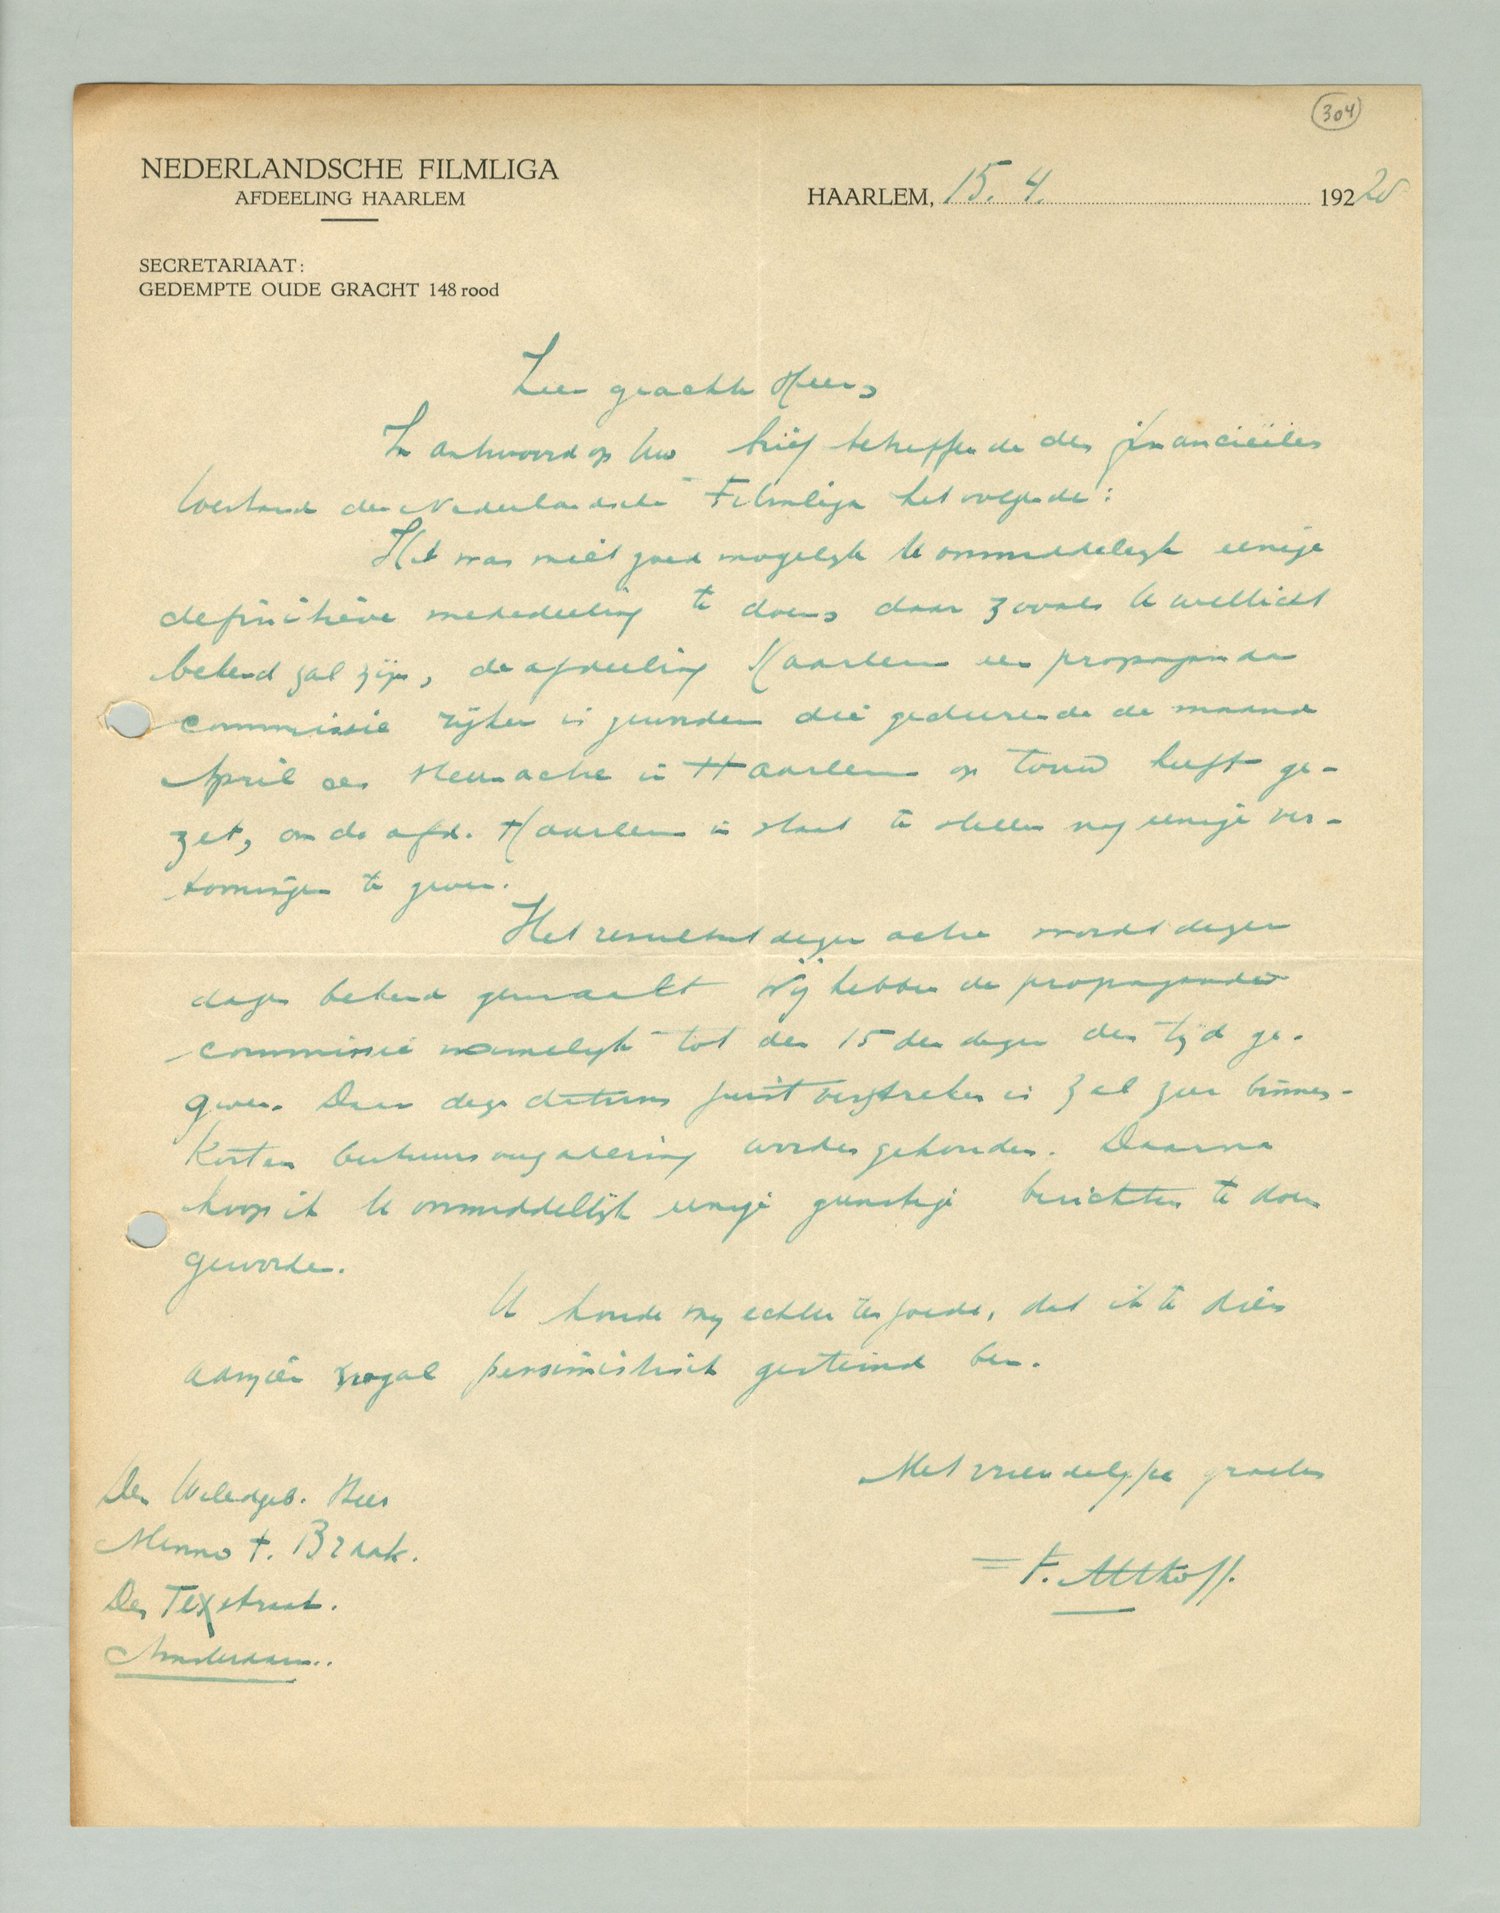 304
NEDERLANDSCHE FILMLIGA
AFDEELING HAARLEM
HAARLEM, 15. 4. 192
SECRETARIAAT:
GEDEMPTE OUDE GRACHT 148 rood
Zeer geachte Heer,
In antwoord op Uw brief betreffende den financieelen
toestand der Nederlandsche Filmliga het volgende:
Het was niet goed mogelijk U onmiddelijk eenige
definitieve mededeeling te doen, daar zooals U wellicht
bekend zal zijn, de afdeeling Haarlem een propaganda
commissie rijker is geworden die gedurende de maand
April een actie in Haarlem op touw heeft ge-
zet, om de afd. Haarlem in staat te stellen nog eenige ver-
tooningen te geven.
Het resultaat dezer actie wordt dezer
dagen bekend gemaakt. Wij hebben de propaganda
commissie namelijk tot den 15 den dezer den tijd ge-
geven. Daar deze datum juist verstreken is zal zeer binnen-
korten bestuursvergadering worden gehouden. Daarna
hoop ik U onmiddellijk eenige gunstige berichten te doen
geworden.
U houde mij echter ten goede, dat ik te dien
aanzien nogal pessimistisch gestemd ben.
Met vriendelijke groeten
F. Althoff.
Den Weledgeb. Heer
Menno t. Braak.
Den Texstraat.
Amsterdam.